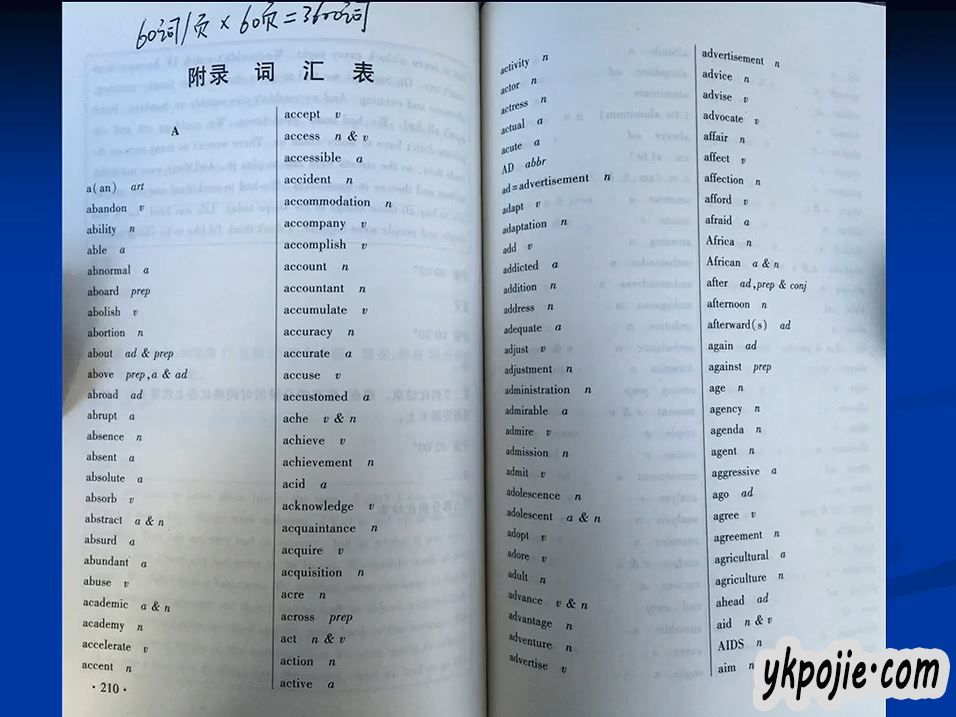 60词/页 × 60页 = 3600词
附录 词 汇 表
A
a(an) art
abandon v
ability n
able a
abnormal a
aboard prep
abolish v
abortion n
about ad & prep
above prep,a & ad
abroad ad
abrupt a
absence n
absent a
absolute a
absorb v
abstract a & n
absurd a
abundant a
abuse v
academic a & n
academy n
accelerate v
accent n
·210·
accept v
access n & v
accessible a
accident n
accommodation n
accompany v
accomplish v
account n
accountant n
accumulate v
accuracy n
accurate a
accuse v
accustomed a
ache v & n
achieve v
achievement n
acid a
acknowledge v
acquaintance n
acquire v
acquisition n
acre n
across prep
act n & v
action n
active a
activity n
actor n
actress n
actual a
acute a
AD abbr
ad=advertisement n
adapt v
adaptation n
add v
addicted a
addition n
address n
adequate a
adjust v
adjustment n
administration n
admirable a
admire v
admission n
admit v
adolescence n
adolescent a & n
adopt v
adore v
adult n
advance v & n
advantage n
adventure n
advertise v
advertisement n
advice n
advise v
advocate v
affair n
affect v
affection n
afford v
afraid a
Africa n
African a & n
after ad,prep & conj
afternoon n
afterward(s) ad
again ad
against prep
age n
agency n
agenda n
agent n
aggressive a
ago ad
agree v
agreement n
agricultural a
agriculture n
ahead ad
aid n & v
AIDS n
aim n
ykpojie.com